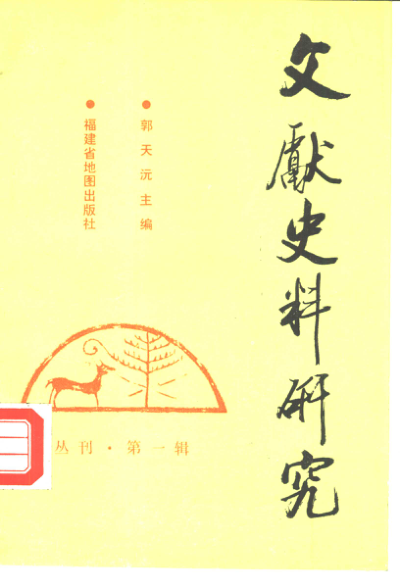 文獻史料研究
郭天沅主编
福建省地图出版社
丛刊·第一辑